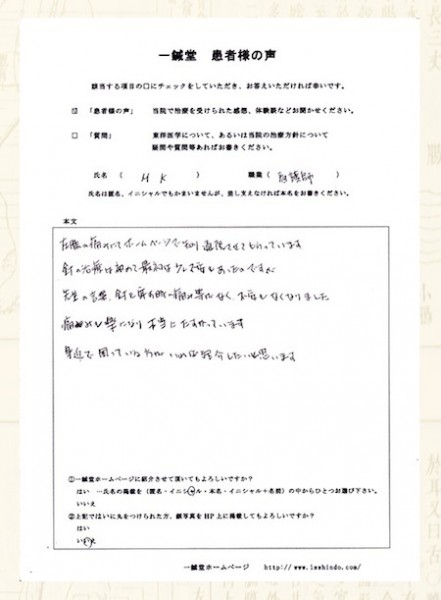 一鍼堂 患者様の声
該当する項目の口にチェックをしていただき、お答えいただければ幸いです。
☑ 「患者様の声」 当院で治療を受けられた感想、体験談などお聞かせください。
□ 「質問」 東洋医学について、あるいは当院の治療方針について
疑問や質問等あればお書きください。
氏名 ( H K ) 職業 ( 看護師 )
氏名は匿名、イニシャルでもかまいませんが、差し支えなければ本名をお書きください。
本文
ホームページで 通院させてもらっています
針の治療は初めて最初は少し不安もあったのですが
先生の 針も 痛み なく、不安もなくなりました
痛み 楽になり 本当にたすかっています
身近で困っている方が いれば紹介したいと思います
①一鍼堂ホームページに紹介させて頂いてもよろしいですか？
はい …氏名の掲載を（匿名・イニシャル・本名・イニシャル＋名前）の中からひとつお選び下さい。
いいえ
②上記ではいに丸をつけられた方、顔写真をHP上に掲載してもよろしいですか？
はい
いいえ
一鍼堂ホームページ http://www.isshindo.com/